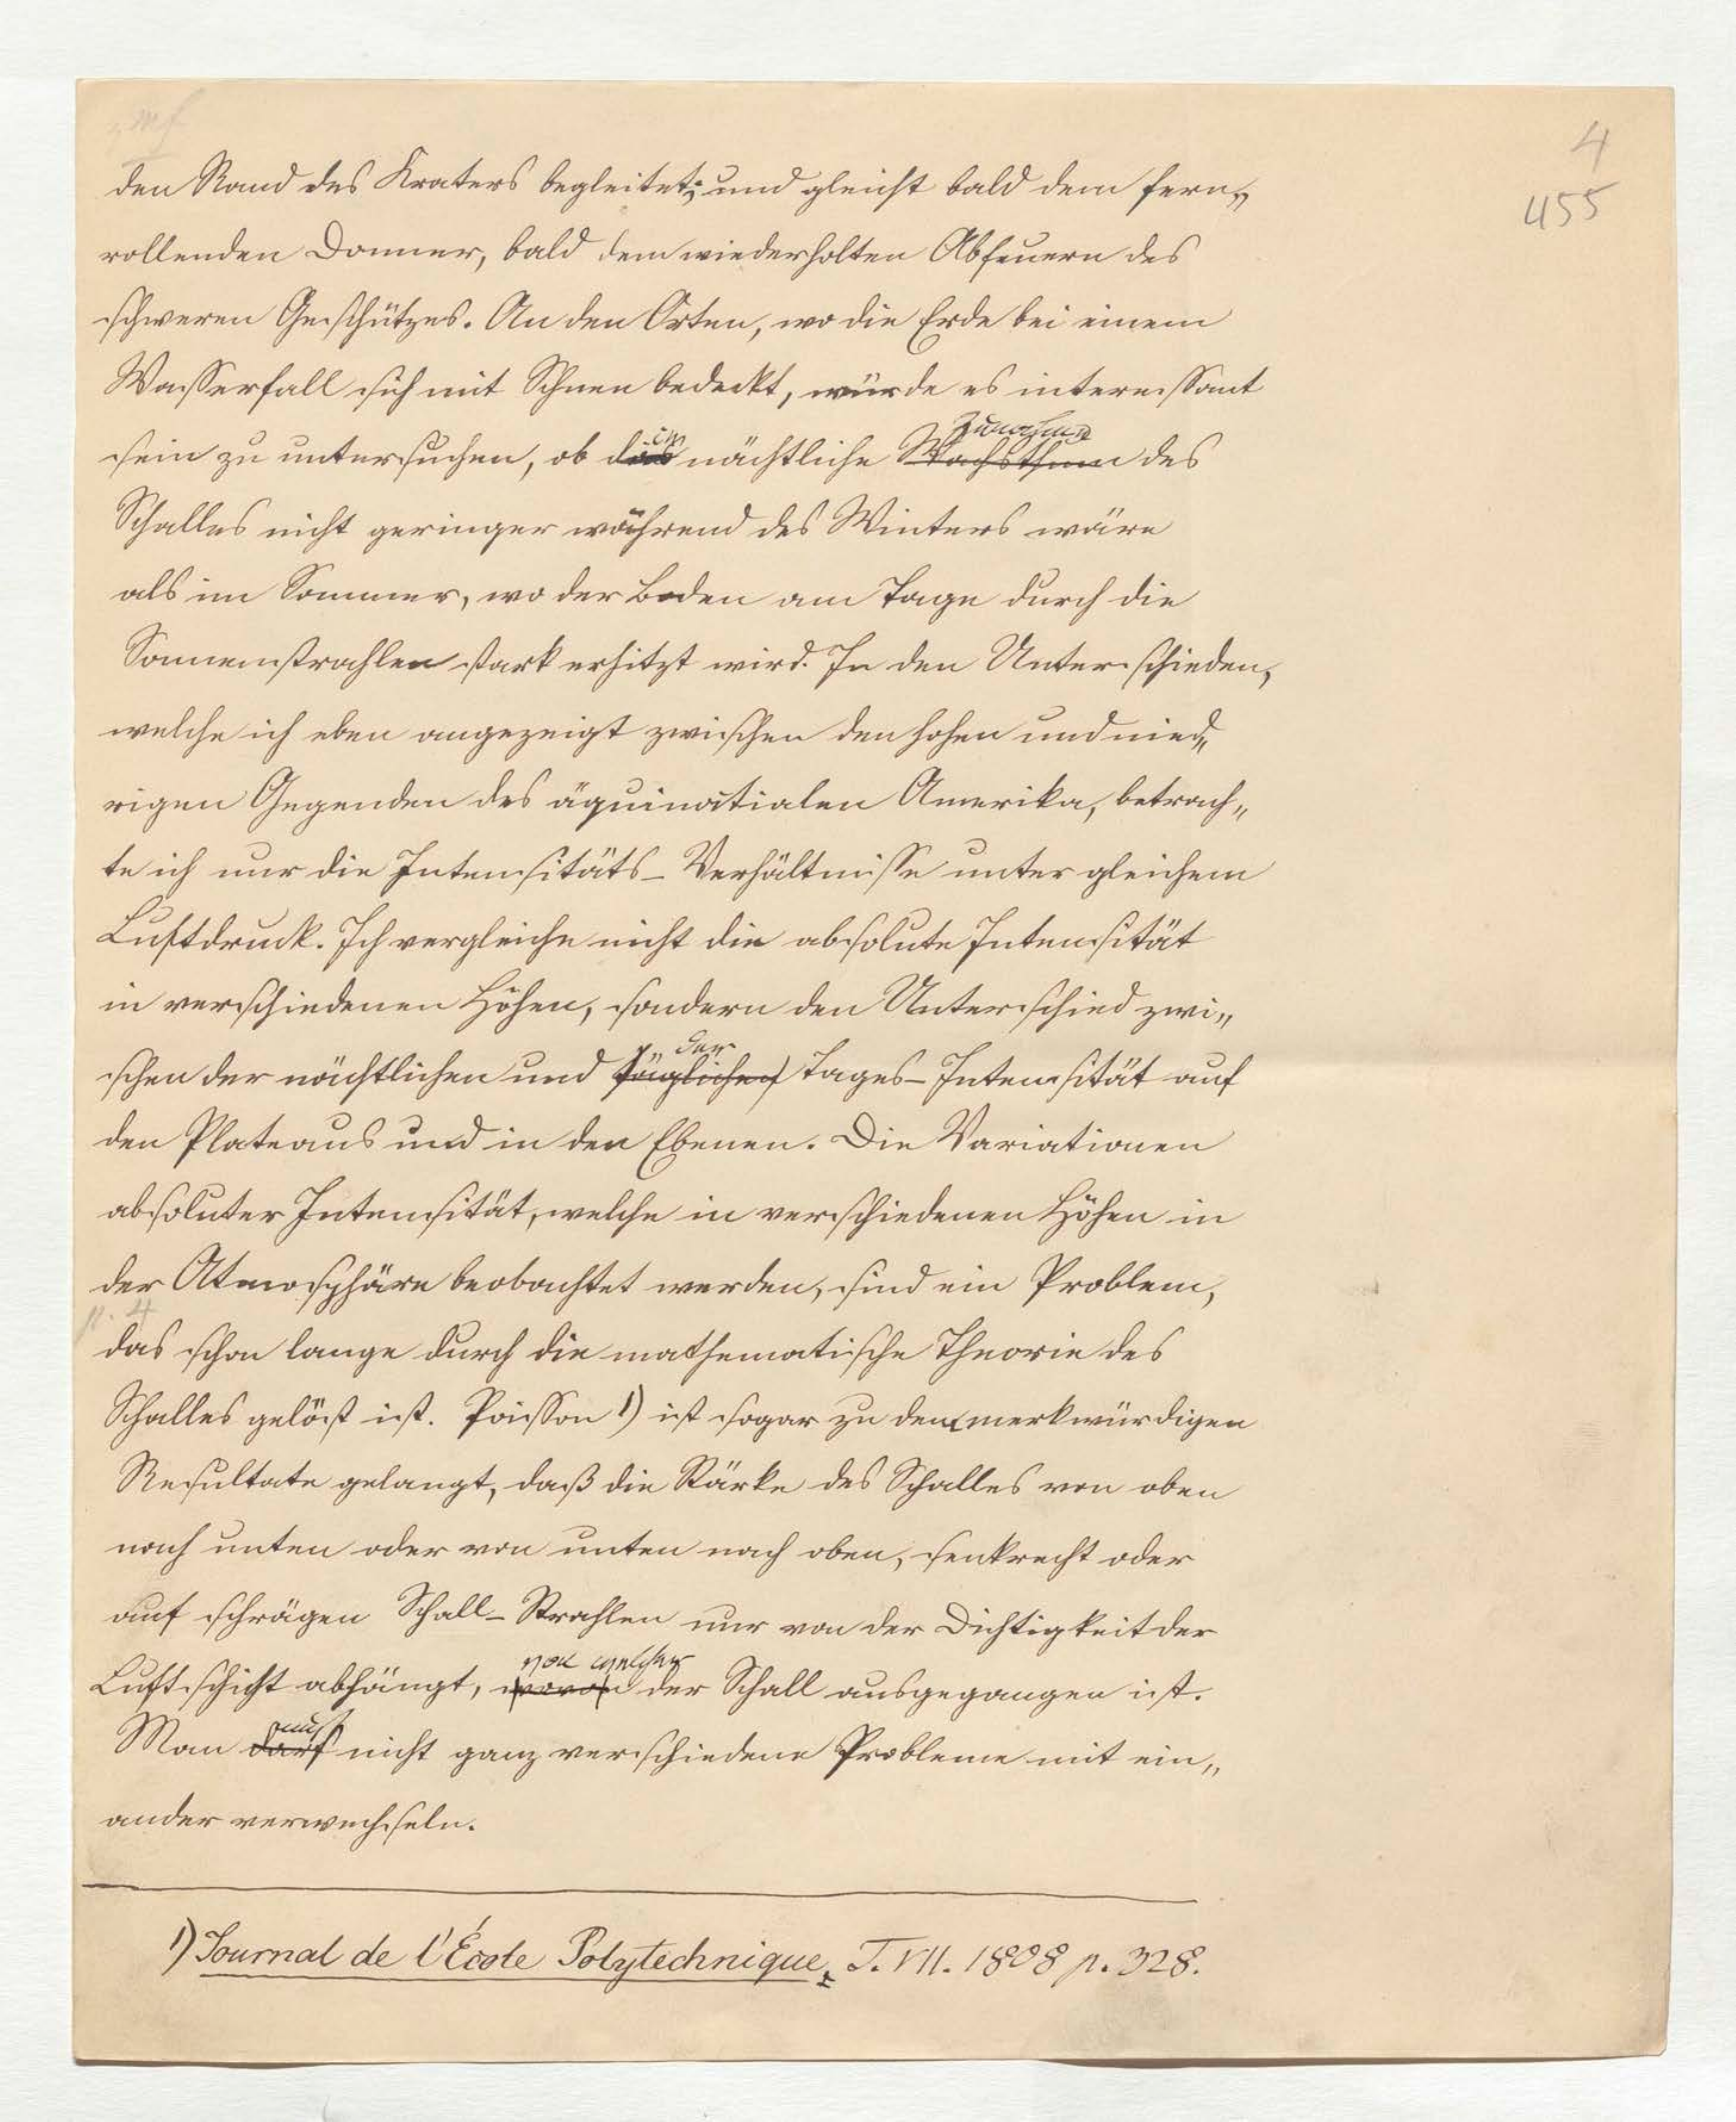 4
455
den Rand des Kraters begleitet; und gleicht bald dem fern„
rollenden Donner, bald dem wiederholten Abfeuern des
schweren Geschützes. An den Orten, wo die Erde bei einem
Wasserfall sich mit Schnee bedeckt, würde es interessant
Zunahme
sein zu untersuchen, ob die nächtliche Wachsthum des
Schalles nicht geringer während des Winters wäre
als im Sommer, wo der Boden am Tage durch die
Sonnenstrahlen stark erhitzt wird. In den Unterschieden,
welche ich eben angezeigt zwischen den hohen und nied„
rigen Gegenden des äquinoctialen Amerika, betrach„
te ich nur die Intensitäts-Verhältnisse unter gleichem
Luftdruck. Ich vergleiche nicht die absolute Intensität
in verschiedenen Höhen, sondern den Unterschied zwi„
der
schen der nächtlichen und täglichen Tages-Intensität auf
den Plateaus und in den Ebenen. Die Variationen
absoluter Intensität, welche in verschiedenen Höhen in
der Atmosphäre beobachtet werden, sind ein Problem,
p. 4
das schon lange durch die mathematische Theorie des
Schalles gelöst ist. Poisson 1) ist sogar zu dem merkwürdigen
Resultate gelangt, daß die Stärke des Schalles von oben
nach unten oder von unten nach oben, senkrecht oder
auf schrägen Schall-Strahlen nur von der Dichtigkeit der
von welcher
Luftschicht abhängt, wovon der Schall ausgegangen ist.
muß
Man darf nicht ganz verschiedene Probleme mit ein„
ander verwechseln.
1) Journal de l'École Polytechnique, T. VII. 1808 p. 328.